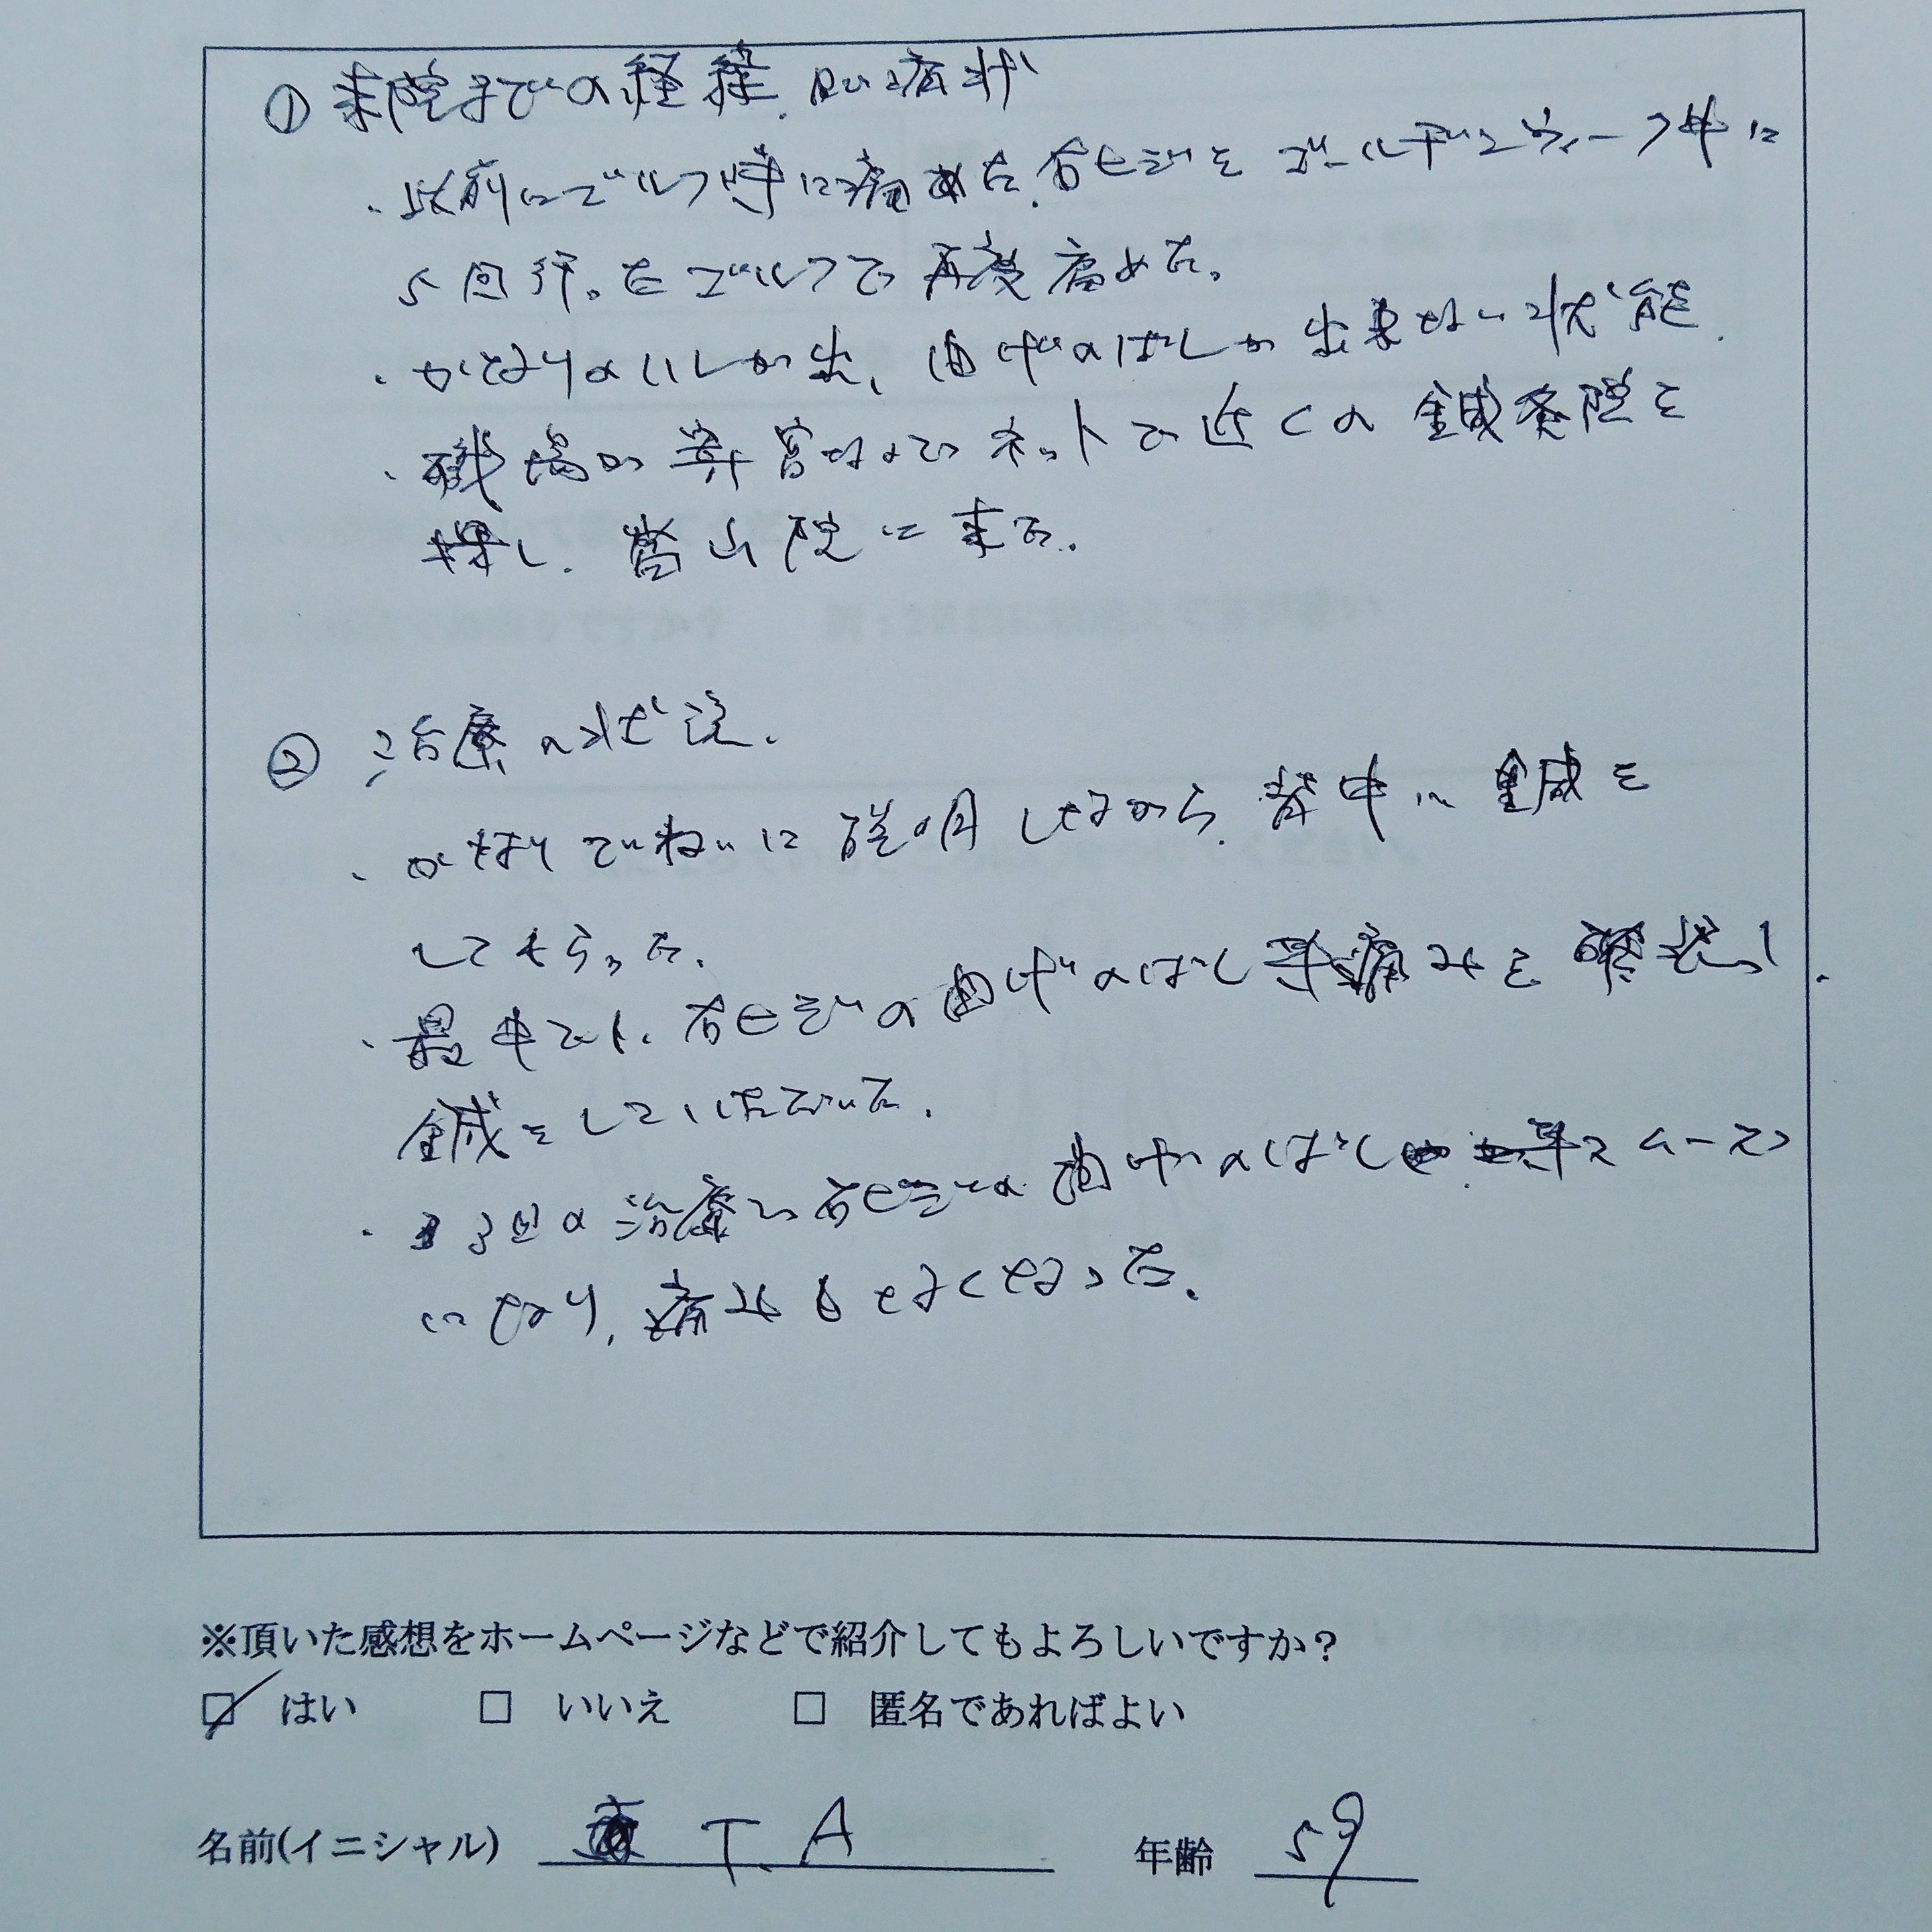 ① 来院までの経緯、及び病状
・以前にゴルフ時に痛めた、右ヒジをゴールデンウィーク中に
5回行ったゴルフで再度痛めた。
・かなりのハレが出、曲げのばしが出来ない状態。
・職場が葬宮なのでネットで近くの鍼灸院を
探し、営山院に来た。
② 治療の状況。
・かなりていねいに説明しながら、背中に鍼を
してもらった。
・最中でも、右ヒジの曲げのばし、痛みを確認し、
鍼をしていただいた。
・3回の治療で右ヒジの曲げのばしスムーズ
になり、痛みもなくなった。
※頂いた感想をホームページなどで紹介してもよろしいですか？
☑ はい □ いいえ □ 匿名であればよい
名前(イニシャル) T.A 年齢 59